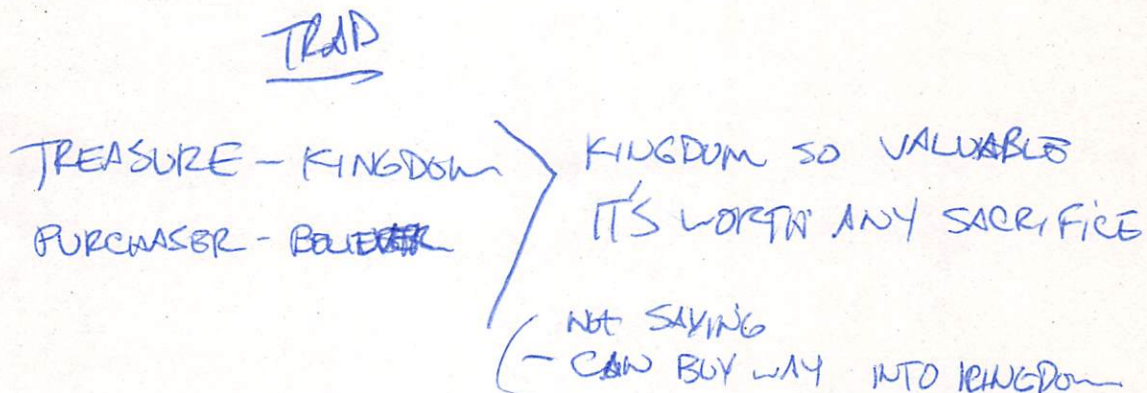 TRAD
TREASURE - KINGDOM
PURCHASER - BELIEVER
KINGDOM SO VALUABLE
IT'S WORTH ANY SACRIFICE
NOT SAYING
(- CAN BUY WAY INTO KINGDOM